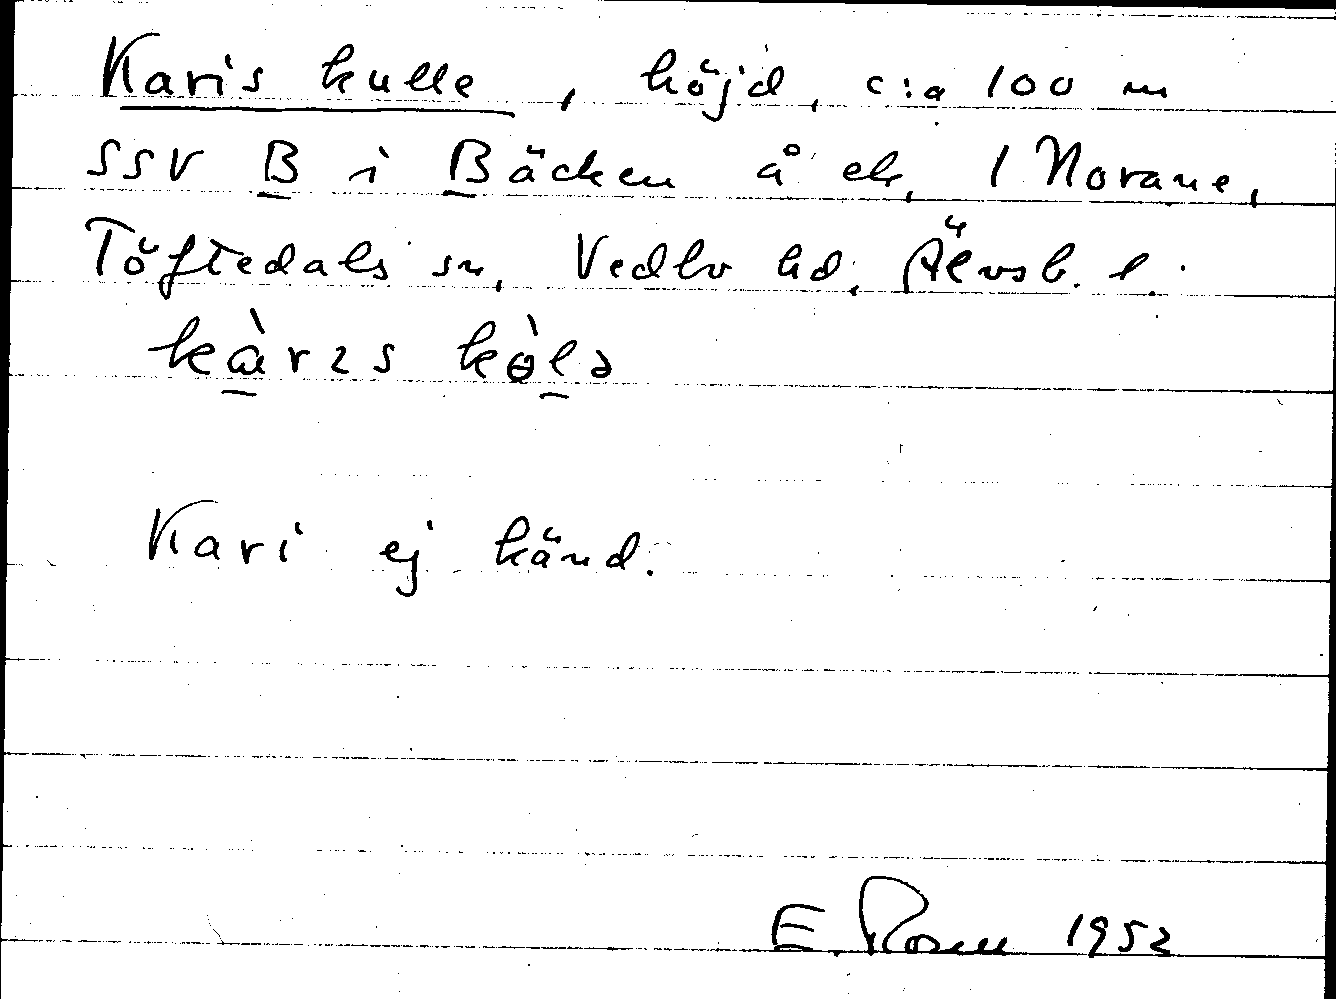 Karis kulle, höjd, c:a 100 m
SSV B i Bäcken å ek. 1 Norane,
Töftedals sn, Vedbo hd, Älvsb. l.
kàrɩs kɵ̀lə
Kari ej känd.
E. Rosell 1952